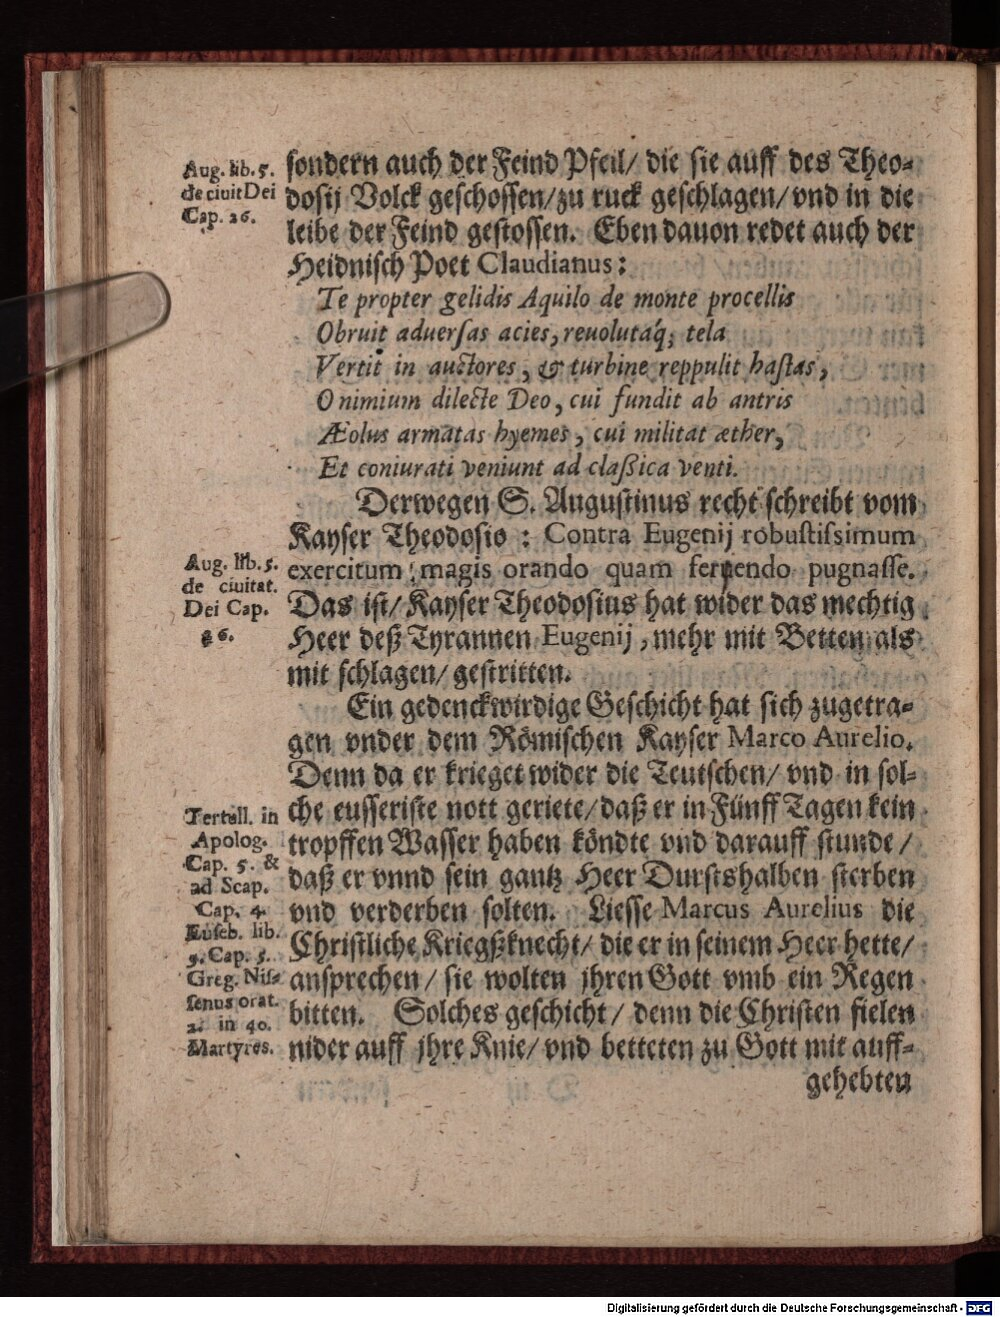 Aug. lib. 5.
de ciuit Dei
Cap. 26.
sondern auch der Feind Pfeil/ die sie auff des Theo-
dosij Volck geschossen/ zu ruck geschlagen/ vnd in die
leibe der Feind gestossen. Eben dauon redet auch der
Heidnisch Poet Claudianus:
Te propter gelidis Aquilo de monte procellis
Obruit aduerſas acies, reuolutaq́; tela
Vertit in auctores, & turbine reppulit haſtas,
O nimium dilecte Deo, cui fundit ab antris
Æolus armatas hyemes, cui militat æther,
Et coniurati veniunt ad claßica venti.
Derwegen S. Augustinus recht schreibt vom
Kayser Theodosio: Contra Eugenij robuſtiſsimum
exercitum magis orando quam feriendo pugnaſſe.
Das ist/ Kayser Theodosius hat wider das mechtig
Heer deß Tyrannen Eugenij, mehr mit Betten als
mit schlagen/ gestritten.
Aug. lib. 5.
de ciuitat.
Dei Cap.
26.
Ein gedenckwirdige Geschicht hat sich zugetra-
gen vnder dem Römischen Kayser Marco Aurelio.
Denn da er krieget wider die Teutschen/ vnd in sol-
che eusseriste nott geriete/ daß er in Fünff Tagen kein
tropffen Wasser haben köndte vnd darauff stunde/
daß er vnnd sein gantz Heer Dursts halben sterben
vnd verderben solten. Liesse Marcus Aurelius die
Christliche Kriegßknecht/ die er in seinem Heer hette/
ansprechen/ sie wolten jhren Gott vmb ein Regen
bitten. Solches geschicht/ denn die Christen fielen
nider auff jhre Knie/ vnd betteten zu Gott mit auff-
gehebten
Tertull. in
Apolog.
Cap. 5. &
ad Scap.
Cap. 4.
Euſeb. lib.
5. Cap. 5.
Greg. Niſ-
ſenus orat.
2. in 40.
Martyres.
Digitalisierung gefördert durch die Deutsche Forschungsgemeinschaft - DFG